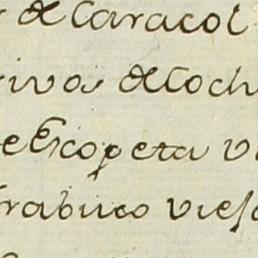 de Caracol
rivos de Coch
e Escopeta v
trabuco viejo